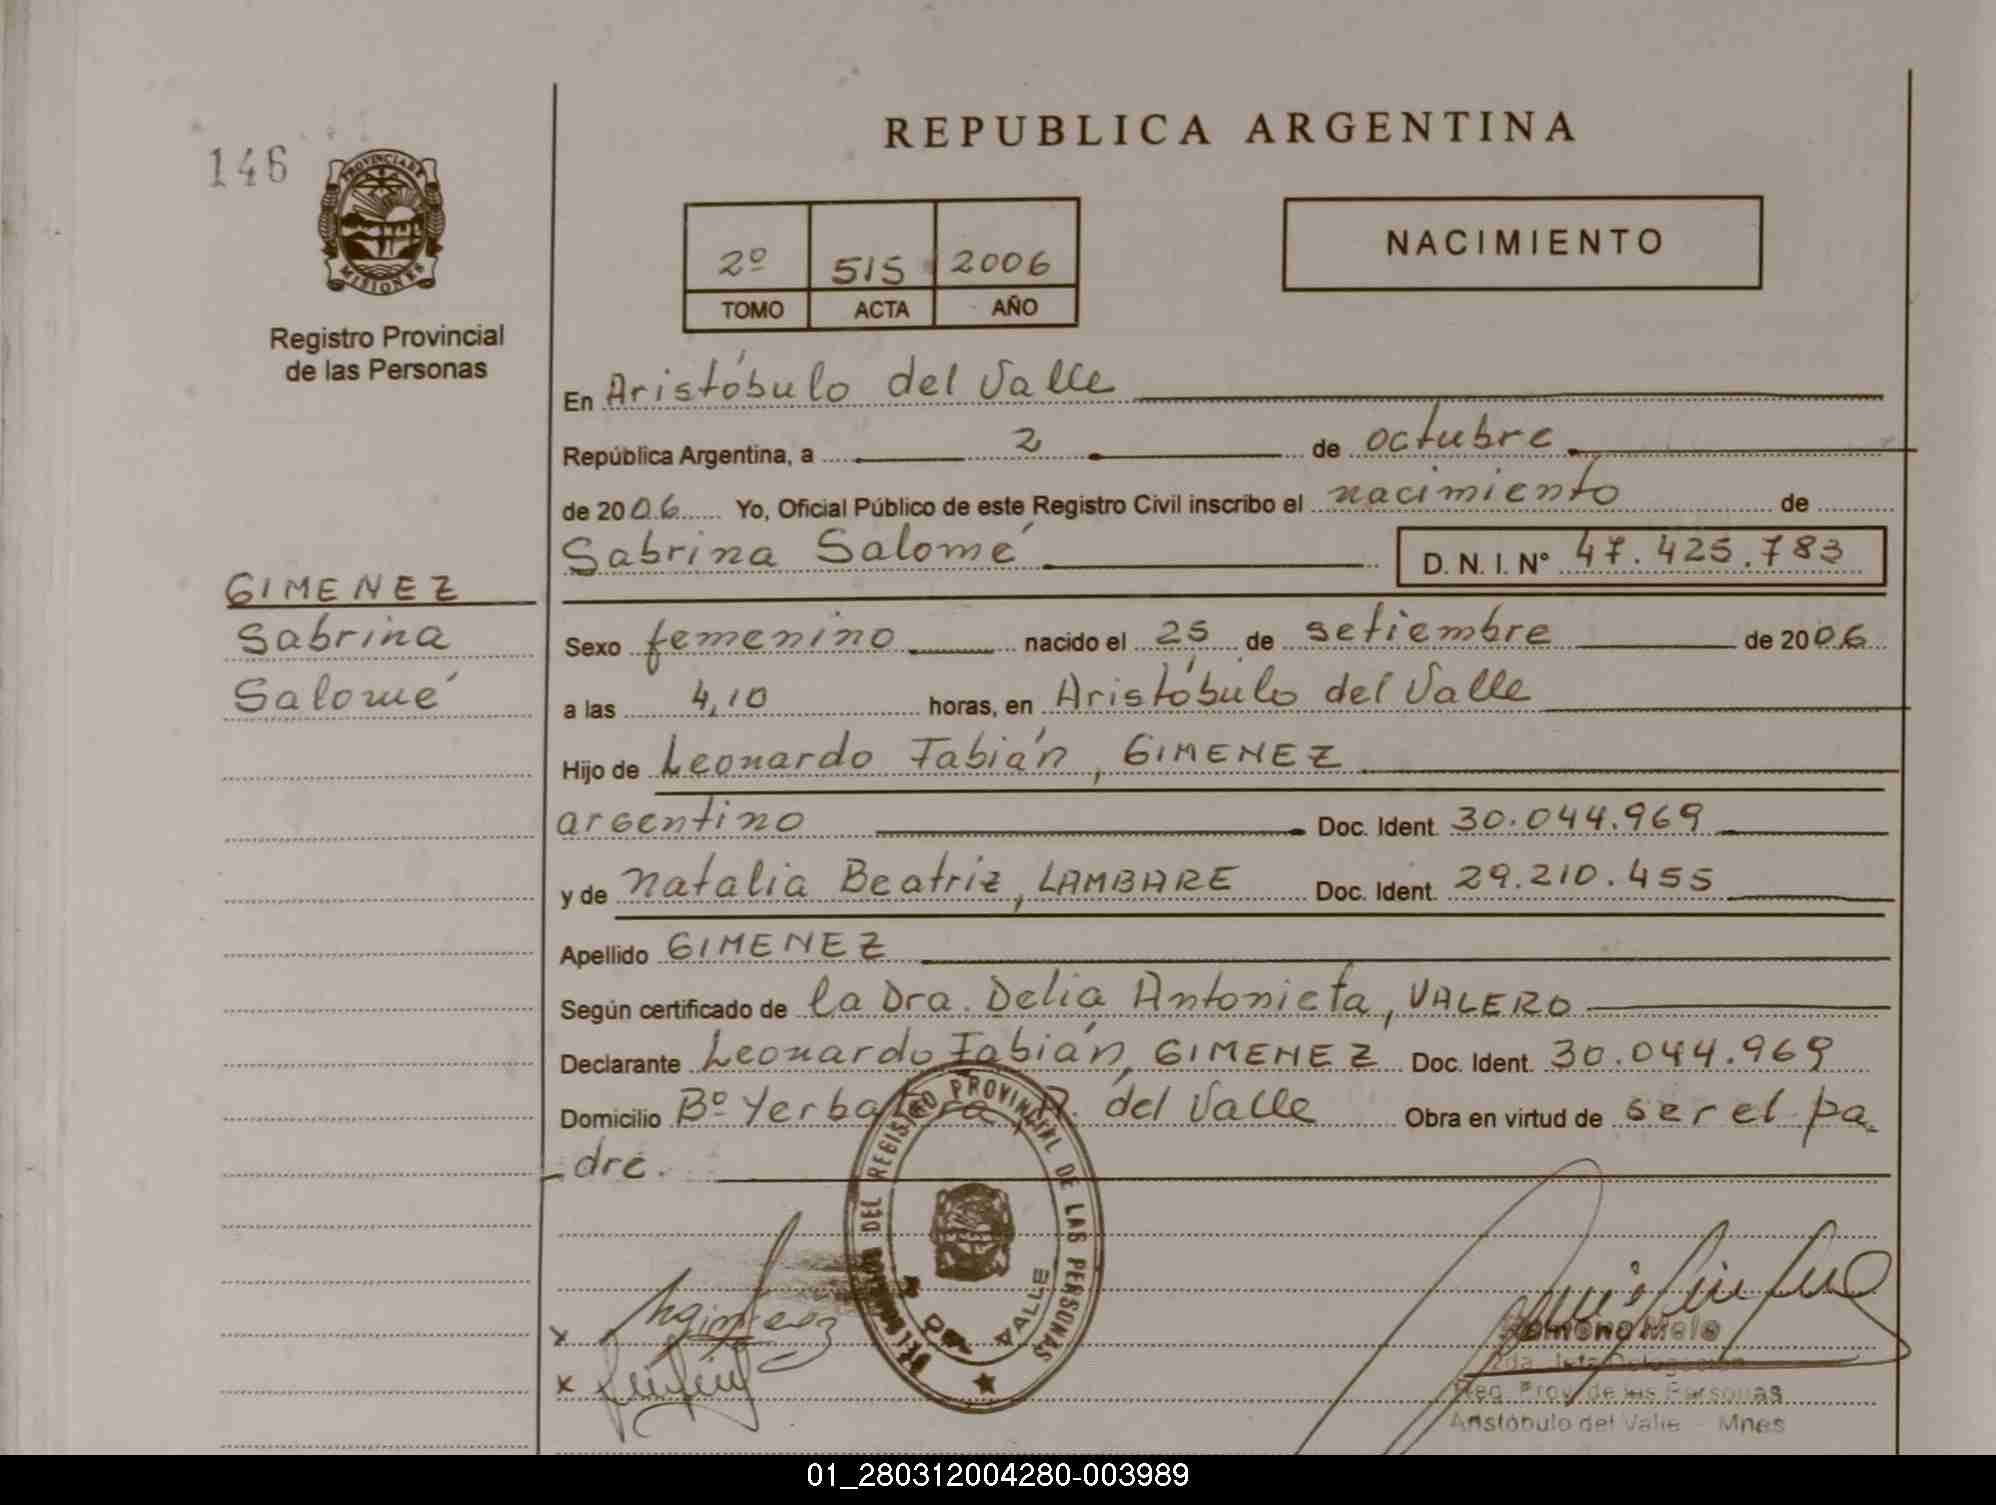 146
PROVINCIA DE
MISIONES
Registro Provincial
de las Personas
REPUBLICA ARGENTINA
2º 515 2006
TOMO ACTA AÑO
NACIMIENTO
En Aristóbulo del Valle
República Argentina, a 2 de octubre
de 2006 Yo, Oficial Público de este Registro Civil inscribo el nacimiento de
Sabrina Salomé D. N. I. Nº 47.425.783
GIMENEZ
Sabrina
Salomé
Sexo femenino nacido el 25 de setiembre de 2006
a las 4,10 horas, en Aristóbulo del Valle
Hijo de Leonardo Fabián, GIMENEZ
argentino Doc. Ident. 30.044.969
y de Natalia Beatriz, LAMBARE Doc. Ident. 29.210.455
Apellido GIMENEZ
Según certificado de la Dra. Delia Antonieta, VALERO
Declarante Leonardo Fabián, GIMENEZ Doc. Ident. 30.044.969
Domicilio Bº Yerbatera A. del Valle Obra en virtud de ser el pa-
dre.
DEL REGISTRO PROVINCIAL DE LAS PERSONAS
VALLE
x
x
Ramona Melo
2da. Jefa Delegación
Reg. Prov. de las Personas
Aristóbulo del Valle - Mnes
01_280312004280-003989